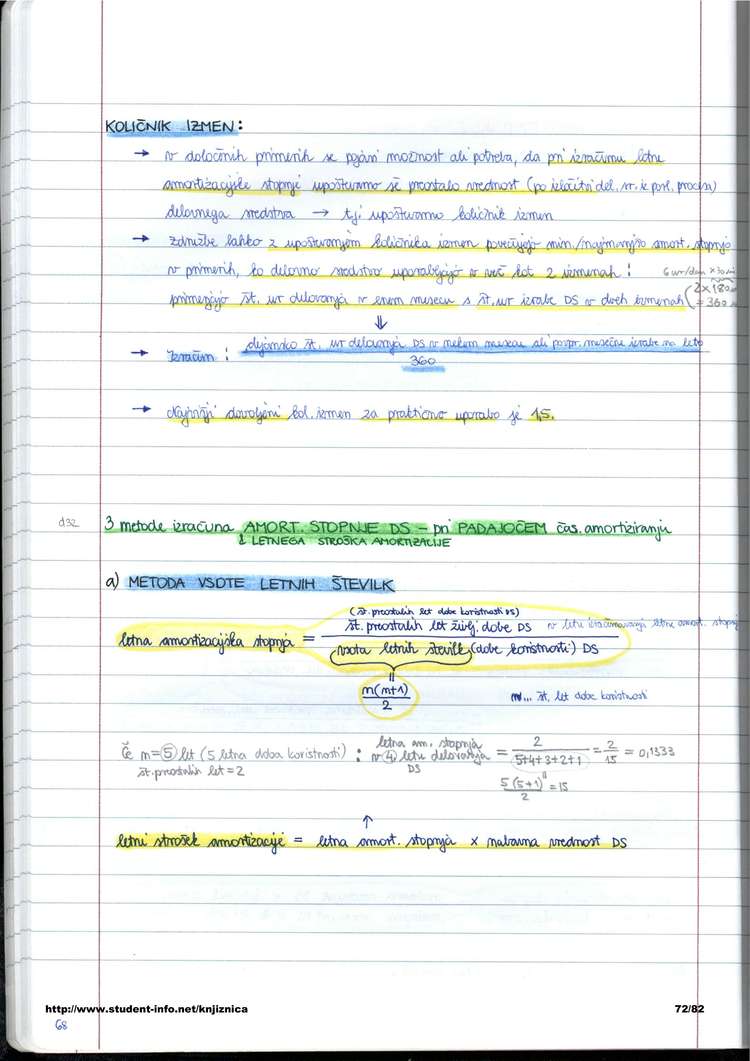 KOLIČNIK IZMEN:
→ v določenih primerih se pojavi možnost ali potreba, da pri izračunu letne
amortizacijske stopnje upoštevamo še preostalo vrednost (po
delovnega sredstva → t.j. upoštevamo količnik izmen
→ združbe lahko z upoštevanjem količnika izmen povečujejo min./najmanjšo amort. stopnjo
v primerih, ko delovno sredstvo uporabljajo v več kot 2 izmenah:
6 ur/dan × 30
primerjajo št. ur delovanja v enem mesecu s št. ur izrabe DS v dveh izmenah (2×180
= 360
⇓
→ Izračun: dejansko št. ur delovanja DS v nekem mesecu ali povpr. mesečne izrabe na leto
360
→ Najnižji dovoljeni kol. izmen za praktično uporabo je 1,5.
d32
3 metode izračuna AMORT. STOPNJE DS – pri PADAJOČEM čas. amortiziranju
& LETNEGA STROŠKA AMORTIZACIJE
a) METODA VSOTE LETNIH ŠTEVILK
(št. preostalih let dobe koristnosti DS)
letna amortizacijska stopnja = št. preostalih let življ. dobe DS v letu izračunavanja letne amort. stopnje
vsota letnih številk (dobe koristnosti) DS
=
m(m+1)
2
m... št. let dobe koristnosti
Če m=5 let (5 letna doba koristnosti) : letna am. stopnja v 4 letu delovanja DS = 2 / 5+4+3+2+1 = 2/15 = 0,1333
št. preostalih let = 2
5(5+1)/2 = 15
↑
letni strošek amortizacije = letna amort. stopnja × nabavna vrednost DS
http://www.student-info.net/knjiznica
72/82
68